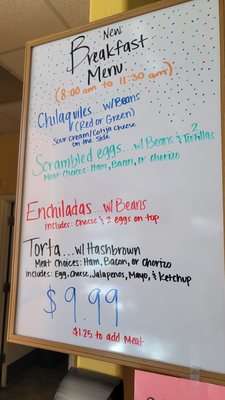 New
Breakfast
Menu
(8:00 am to 11:30 am)
Chilaquiles...w/Beans
(Red or Green)
Sour Cream/Cotija cheese
on the side
Scrambled eggs...w/Beans & 2 Tortillas
Meat Choices: Ham, Bacon, or Chorizo
Enchiladas...w/Beans
includes: Cheese & 2 eggs on top
Torta...w/Hashbrown
Meat Choices: Ham, Bacon, or Chorizo
Includes: Egg, Cheese, Jalapenos, Mayo, & Ketchup
$9.99
$1.25 to add Meat